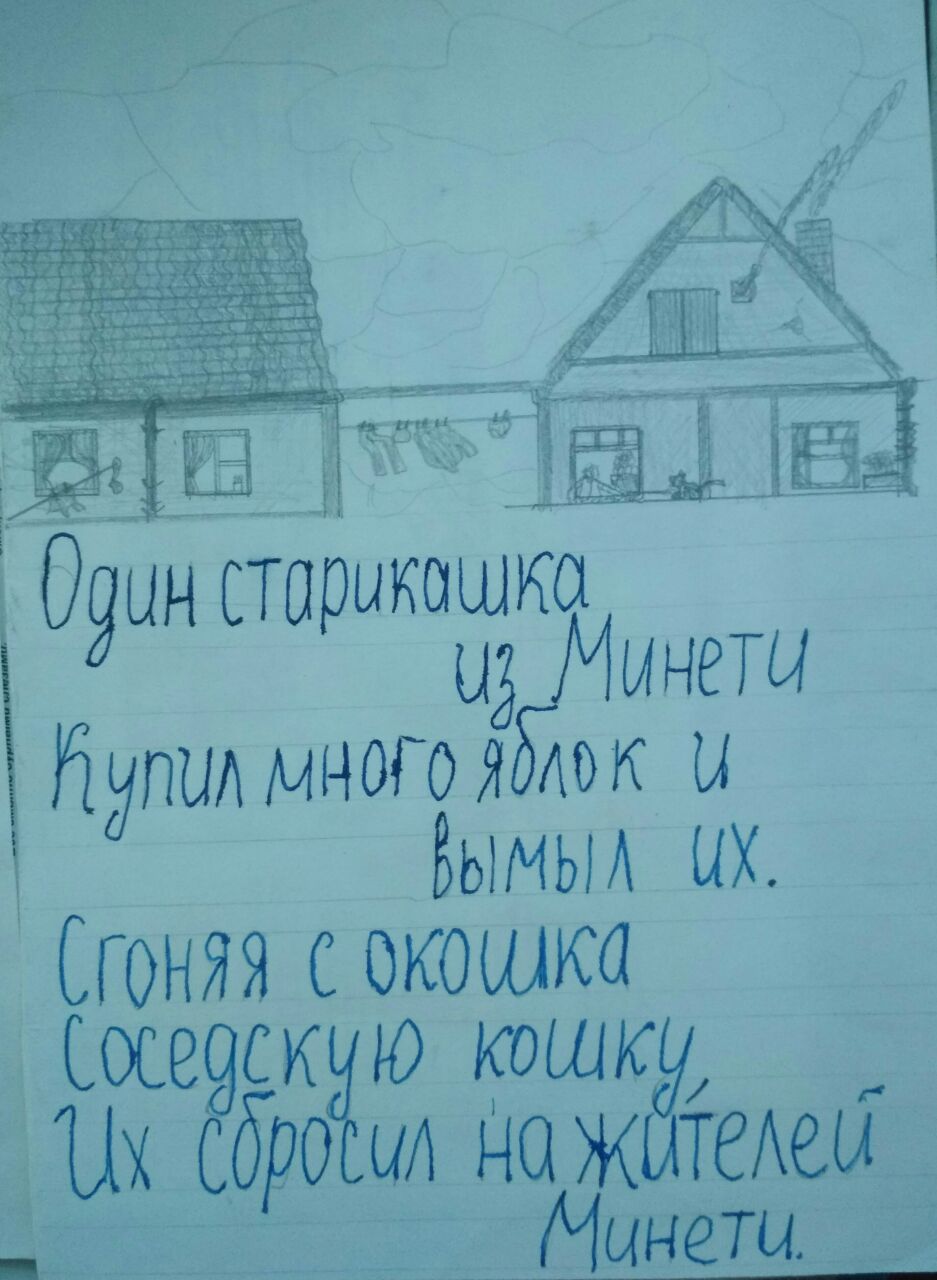 Один старикашка
из Минети
Купил много яблок и
вымыл их.
Сгоняя с окошка
Соседскую кошку,
Их сбросил на жителей
Минети.